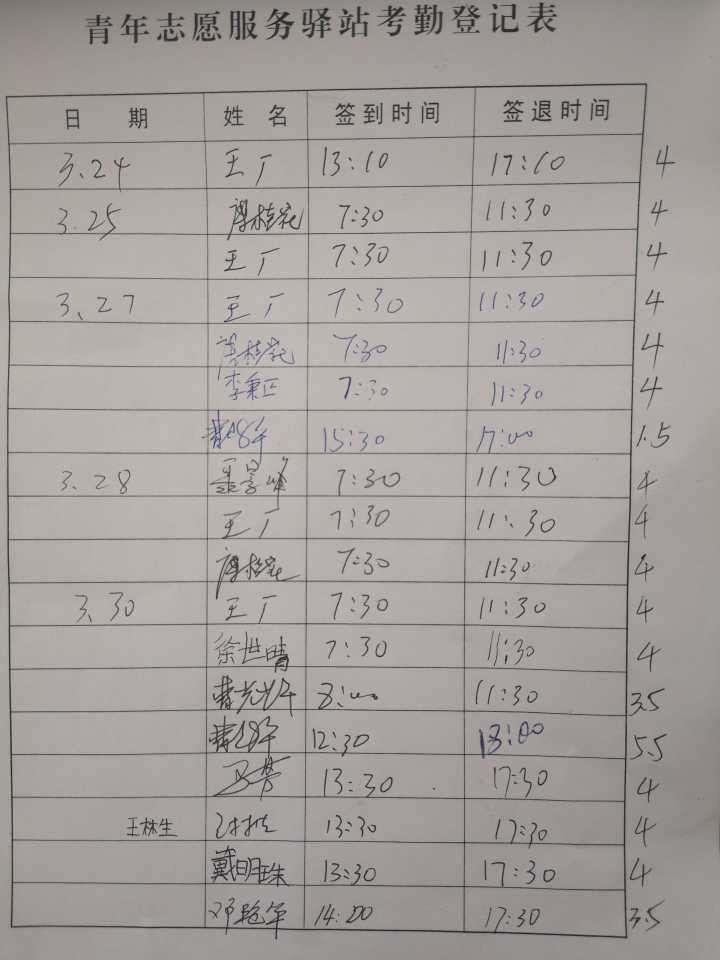 青年志愿服务驿站考勤登记表
日 期 姓 名 签到时间 签退时间
3.24 王厂 13:10 17:10 4
3.25 桂花 7:30 11:30 4
王厂 7:30 11:30 4
3.27 王厂 7:30 11:30 4
桂花 7:30 11:30 4
李秉正 7:30 11:30 4
15:30 17:00 1.5
3.28 聂景峰 7:30 11:30 4
王厂 7:30 11:30 4
桂花 7:30 11:30 4
3.30 王厂 7:30 11:30 4
徐世晴 7:30 11:30 4
8:00 11:30 3.5
12:30 18:00 5.5
13:30 17:30 4
王林生 13:30 17:30 4
戴明珠 13:30 17:30 4
邓 军 14:00 17:30 3.5